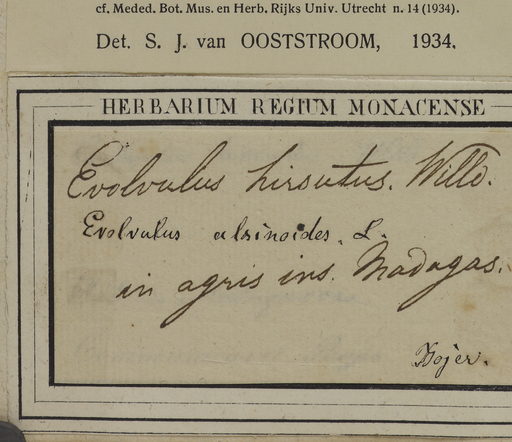 cf. Meded. Bot. Mus. en Herb. Rijks Univ. Utrecht n. 14 (1934).
Det. S. J. van OOSTSTROOM, 1934.
HERBARIUM REGIUM MONACENSE
Evolvulus hirsutus. Willd.
Evolvulus alsinoides. L.
in agris ins. Madagas.
Bojer.